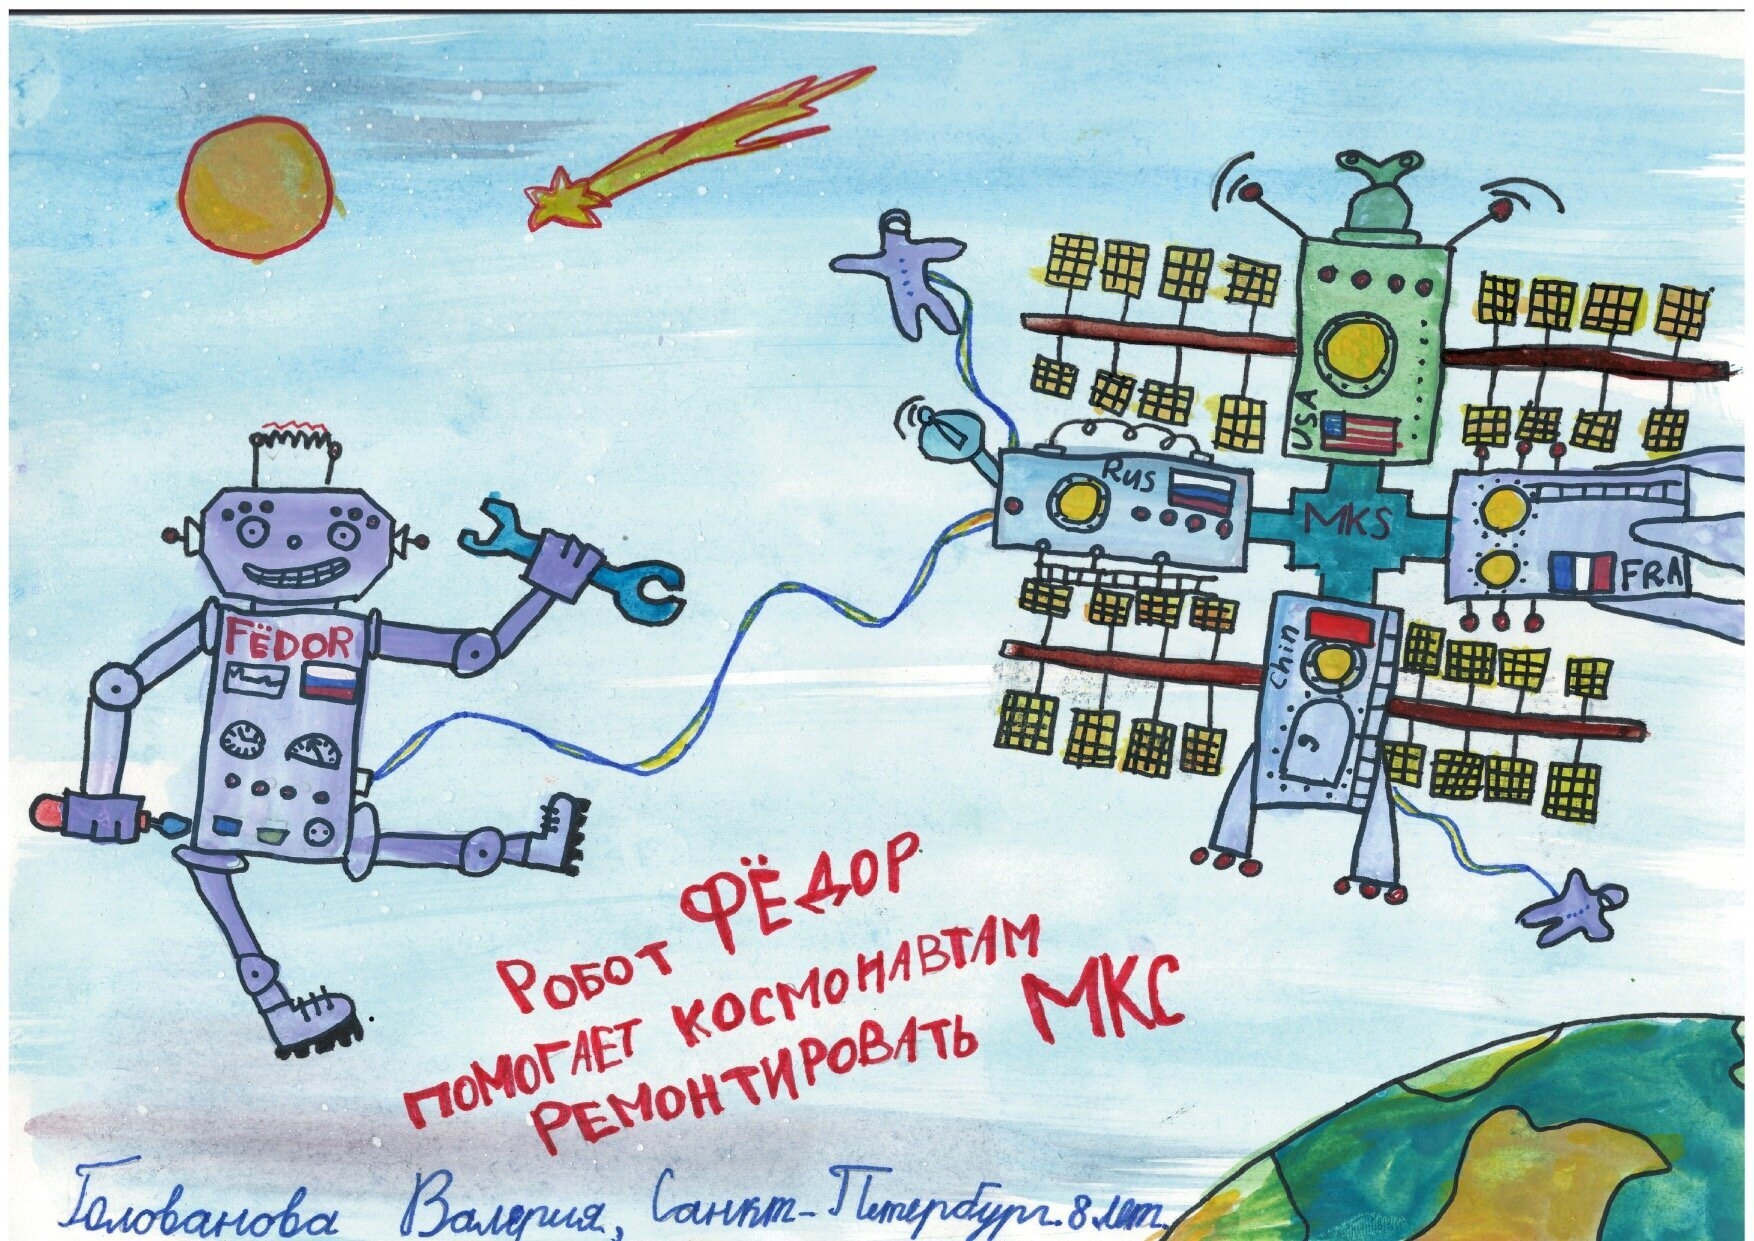 USA
Rus
MKS
FRA
Chin
FЁDOR
Робот ФЁДОР
помогает космонавтам
ремонтировать МКС
Голованова Валерия, Санкт-Петербург. 8 лет.